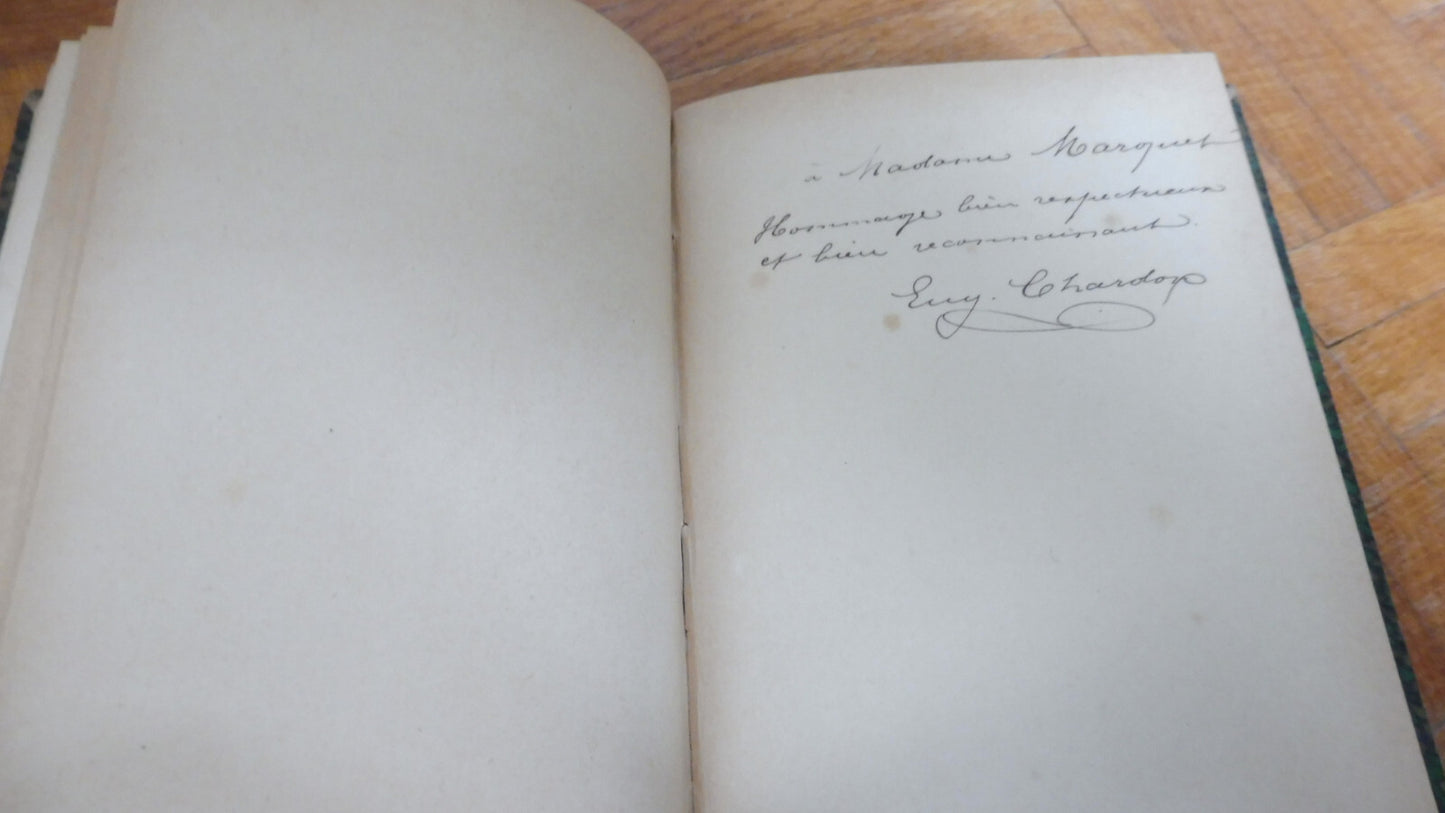 à Madame Marquet
Hommage bien respectueux
et bien reconnaissant.
Eug. Chardon